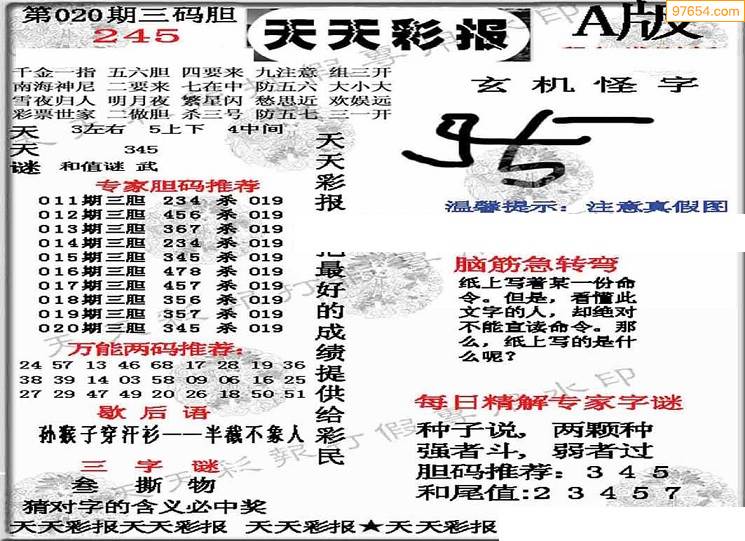 第020期三码胆
245
天天彩报
A版
97654.com
千金一指 五六胆 四要来 九注意 组三开
南海神尼 二要来 七在中 防五六 大小大
雪夜归人 明月夜 繁星闪 愁思近 欢娱远
彩票世家 二做胆 杀三号 防五七 三一开
天 3左右 5上下 4中间
天 345
谜 和值谜 武
专家胆码推荐
011期三胆 234 杀 019
012期三胆 456 杀 019
013期三胆 367 杀 019
014期三胆 234 杀 019
015期三胆 345 杀 019
016期三胆 478 杀 019
017期三胆 457 杀 019
018期三胆 356 杀 019
019期三胆 357 杀 019
020期三胆 345 杀 019
万能两码推荐:
24 57 13 46 68 17 28 19 36
38 39 14 03 58 09 06 16 25
27 29 47 49 20 26 18 50 51
歇后语
孙猴子穿汗衫——半截不象人
三字谜
叁 撕 物
猜对字的含义必中奖
天天彩报
把最好的成绩提供给彩民
玄机怪字
温馨提示：注意真假图
脑筋急转弯
纸上写着某一份命
令。但是，看懂此
文字的人，却绝对
不能宣读命令。那
么，纸上写的是什
么呢？
每日精解专家字谜
种子说，两颗种
强者斗，弱者过
胆码推荐：345
和尾值:23457
天天彩报天天彩报 天天彩报★天天彩报